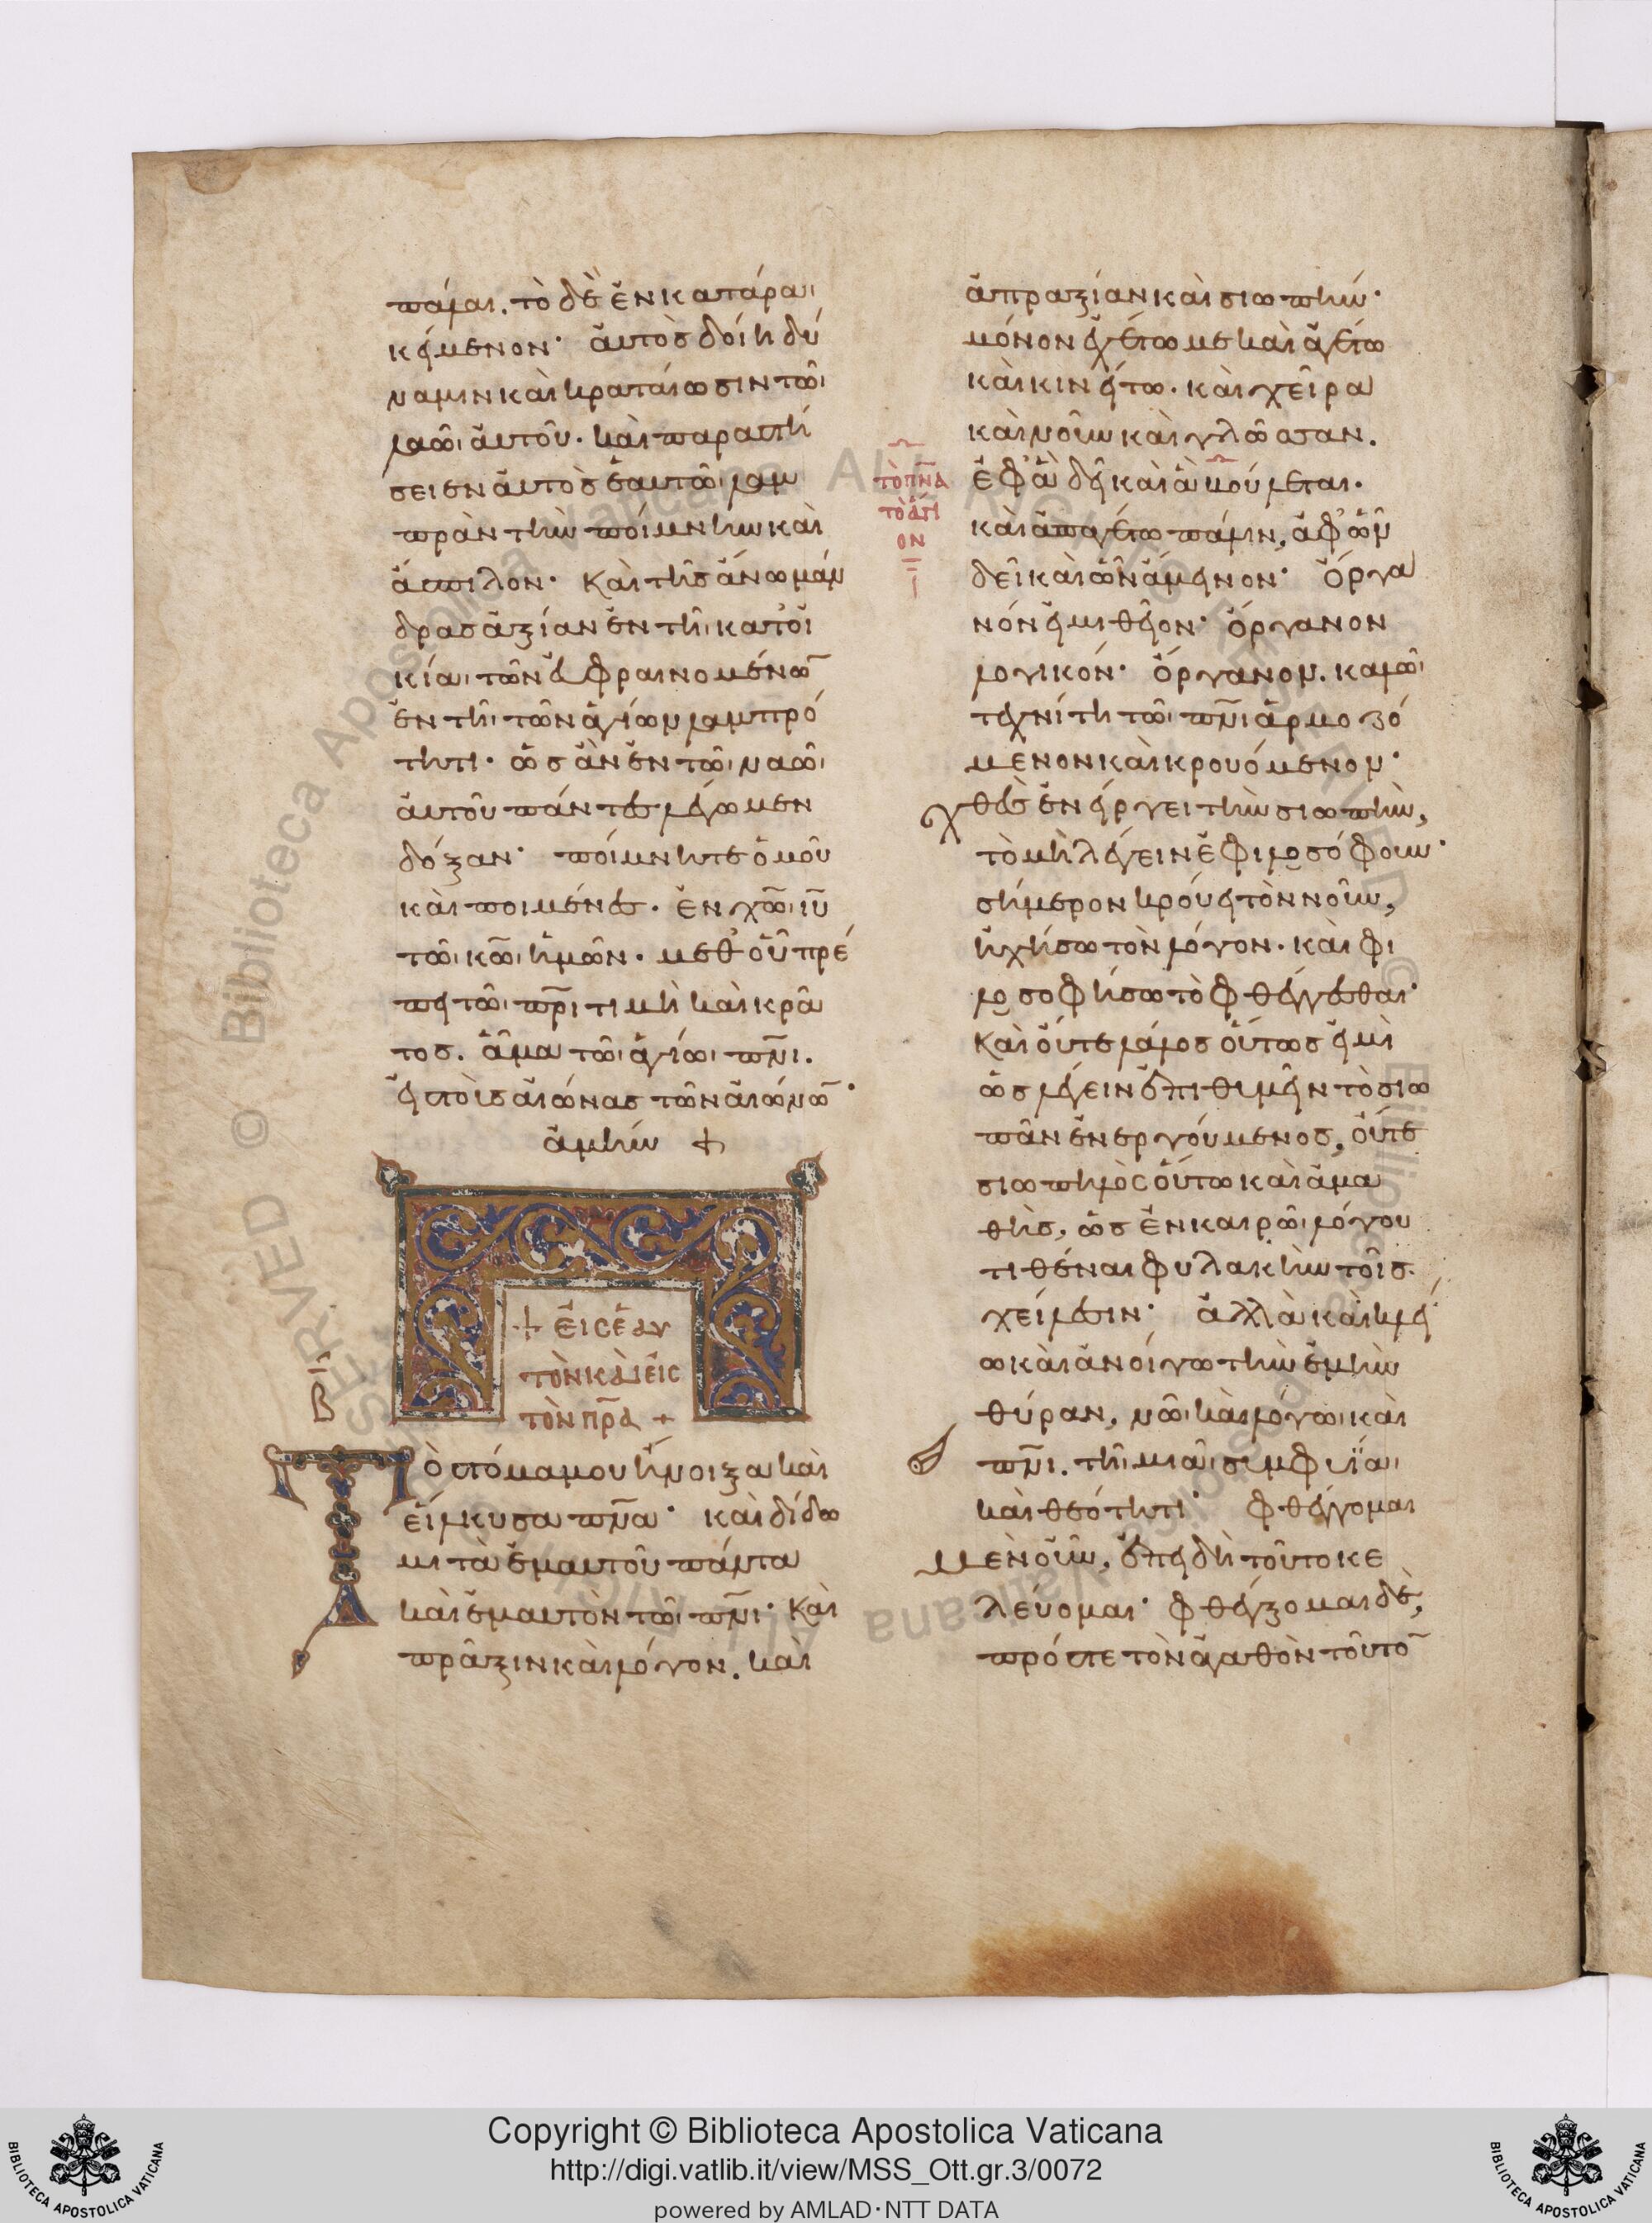 πάλαι. τὸ δὲ ἓν καταρα
κείμενον· αὐτὸς δοίη δύ
ναμιν καὶ κραταίωσιν τῶι
λαῶι αὐτοῦ. καὶ παραστή
σειεν αὐτὸς ἑαυτῶι λαμ
πρὰν τὴν ποίμνην καὶ
ἄσπιλον· καὶ τῆς ἄνω μάν
δρας ἀξίαν ἐν τῆι κατοι
κίαι τῶν εὐφραινομένω̅
ἐν τῆι τῶν ἁγίων λαμπρό
τητι· ὡς ἂν ἐν τῶι ναῶι
αὐτοῦ πάντες λέγωμεν
δόξαν· ποίμνητε ὁμοῦ
καὶ ποιμένες. ἐν χ̅ω̅ι ι̅υ̅
τῶι κ̅ω̅ι ἡμῶν. μεθ' οὗ πρέ
πει τῶι π̅ρ̅ι τιμὴ καὶ κρά
τος. ἅμα τῶι ἁγίωι π̅ν̅ι.
εἰς τοὺς αἰῶνας τῶν αἰώνω̅·
ἀμήν +
+ εἰς ἑαυ
τὸν καὶ εἰς
τὸν π̅ρ̅α +
Β
Τὸ στόμα μου ἤνοιξα καὶ
εἵλκυσα π̅ν̅α· καὶ δίδω
μι τὰ ἐμαυτοῦ πάντα
καὶ ἐμαυτὸν τῶι π̅ν̅ι· καὶ
πρᾶξιν καὶ λόγον. καὶ
τὸ π̅ν̅α
τὸ ἅγι
ον
ἀπραξίαν καὶ σιωπήν·
μόνον ἐχέτω με καὶ ἀγέτω
καὶ κινείτω. καὶ χεῖρα
καὶ νοῦν καὶ γλῶσσαν.
ἐφ' ἃ δεῖ καὶ ἃ βούλεται.
καὶ ἀπαγέτω πάλιν, ἀφ' ὧν
δεῖ καὶ ὧν ἄμεινον· ὄργα
νόν εἰμι θεῖον· ὄργανον
λογικόν· ὄργανον. καλῶι
τεχνίτη τῶι π̅ν̅ι ἁρμοζό
μενον καὶ κρουόμενον·
χθὲς ἐνήργει τὴν σιωπήν,
τὸ μὴ λέγειν ἐφιλοσόφουν·
σήμερον κρούει τὸν νοῦν,
ἠχήσω τὸν λόγον. καὶ φι
λοσοφήσω τὸ φθέγγεσθαι·
καὶ οὔτε λάλος οὕτως εἰμὶ
ὡς λέγειν ἐπιθυμεῖν τὸ σιω
πᾶν ἐνεργούμενος, οὔτε
σιωπηλὸς οὕτω καὶ ἀμα
θὴς, ὡς ἐν καιρῶι λόγου
τιθέναι φυλακὴν τοῖς
χείλεσιν· ἀλλὰ καὶ κλεί
ω καὶ ἀνοίγω τὴν ἐμὴν
θύραν, νῶι καὶ λόγωι καὶ
π̅ν̅ι. τῆι μιᾶι συμφυΐαι
καὶ θεότητι· φθέγγομαι
μὲν οὖν, ἐπειδὴ τοῦτο κε
λεύομαι· φθέγξομαι δὲ,
πρός τε τὸν ἀγαθὸν τοῦτο̅
Copyright © Biblioteca Apostolica Vaticana
http://digi.vatlib.it/view/MSS_Ott.gr.3/0072
powered by AMLAD·NTT DATA
BIBLIOTECA APOSTOLICA VATICANA
BIBLIOTECA APOSTOLICA VATICANA